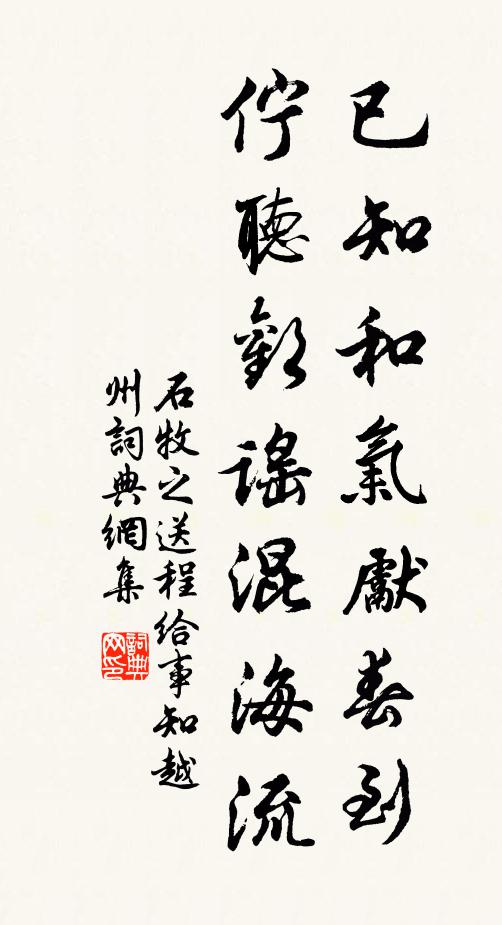 已知和氣獻春到
佇聽歡謠混海流
石牧之送程給事知越
州詞典網集
詞典
网印